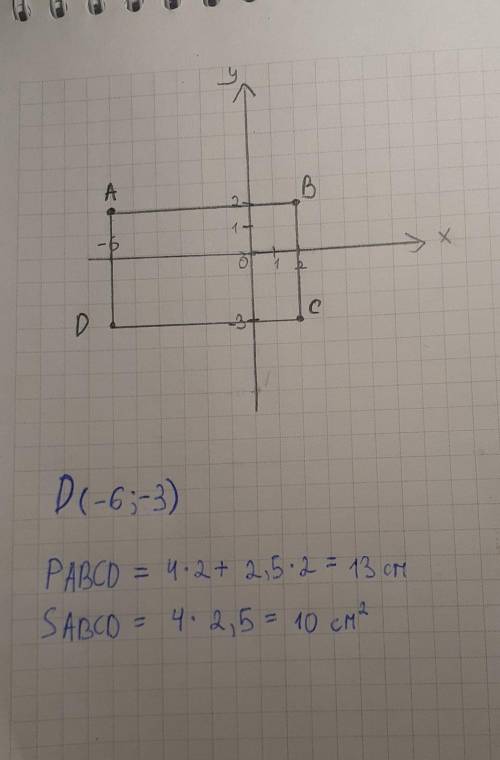 y
A
B
2
1
-6
0
1
2
x
D
-3
C
D(-6;-3)
PABCD = 4·2+ 2,5·2 = 13 см
SABCD = 4· 2,5 = 10 см²